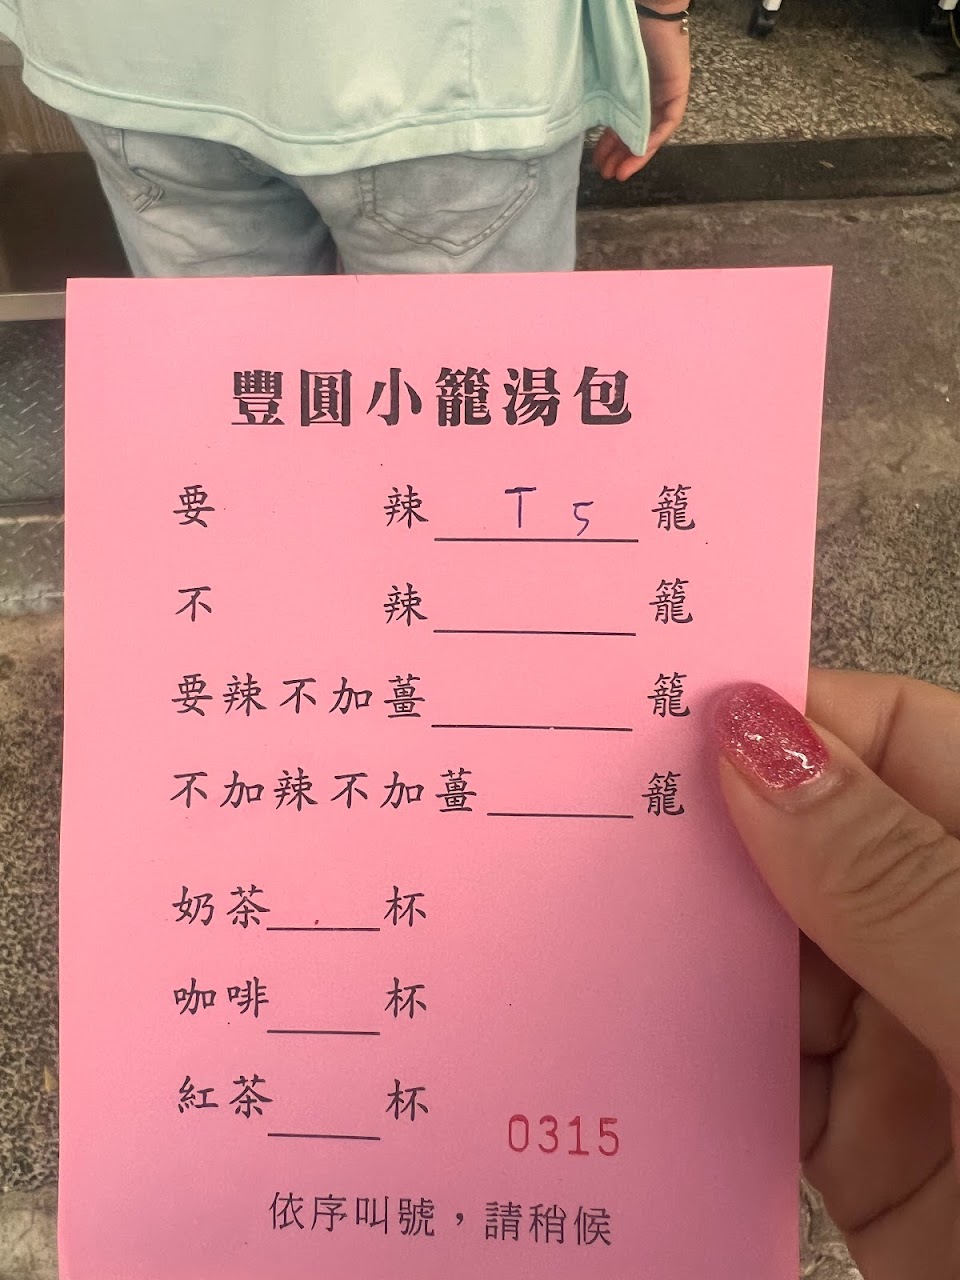 豐圓小籠湯包
要辣 T 5 籠
不辣＿＿籠
要辣不加薑＿＿籠
不加辣不加薑＿＿籠
奶茶＿＿杯
咖啡＿＿杯
紅茶＿＿杯
0315
依序叫號，請稍候